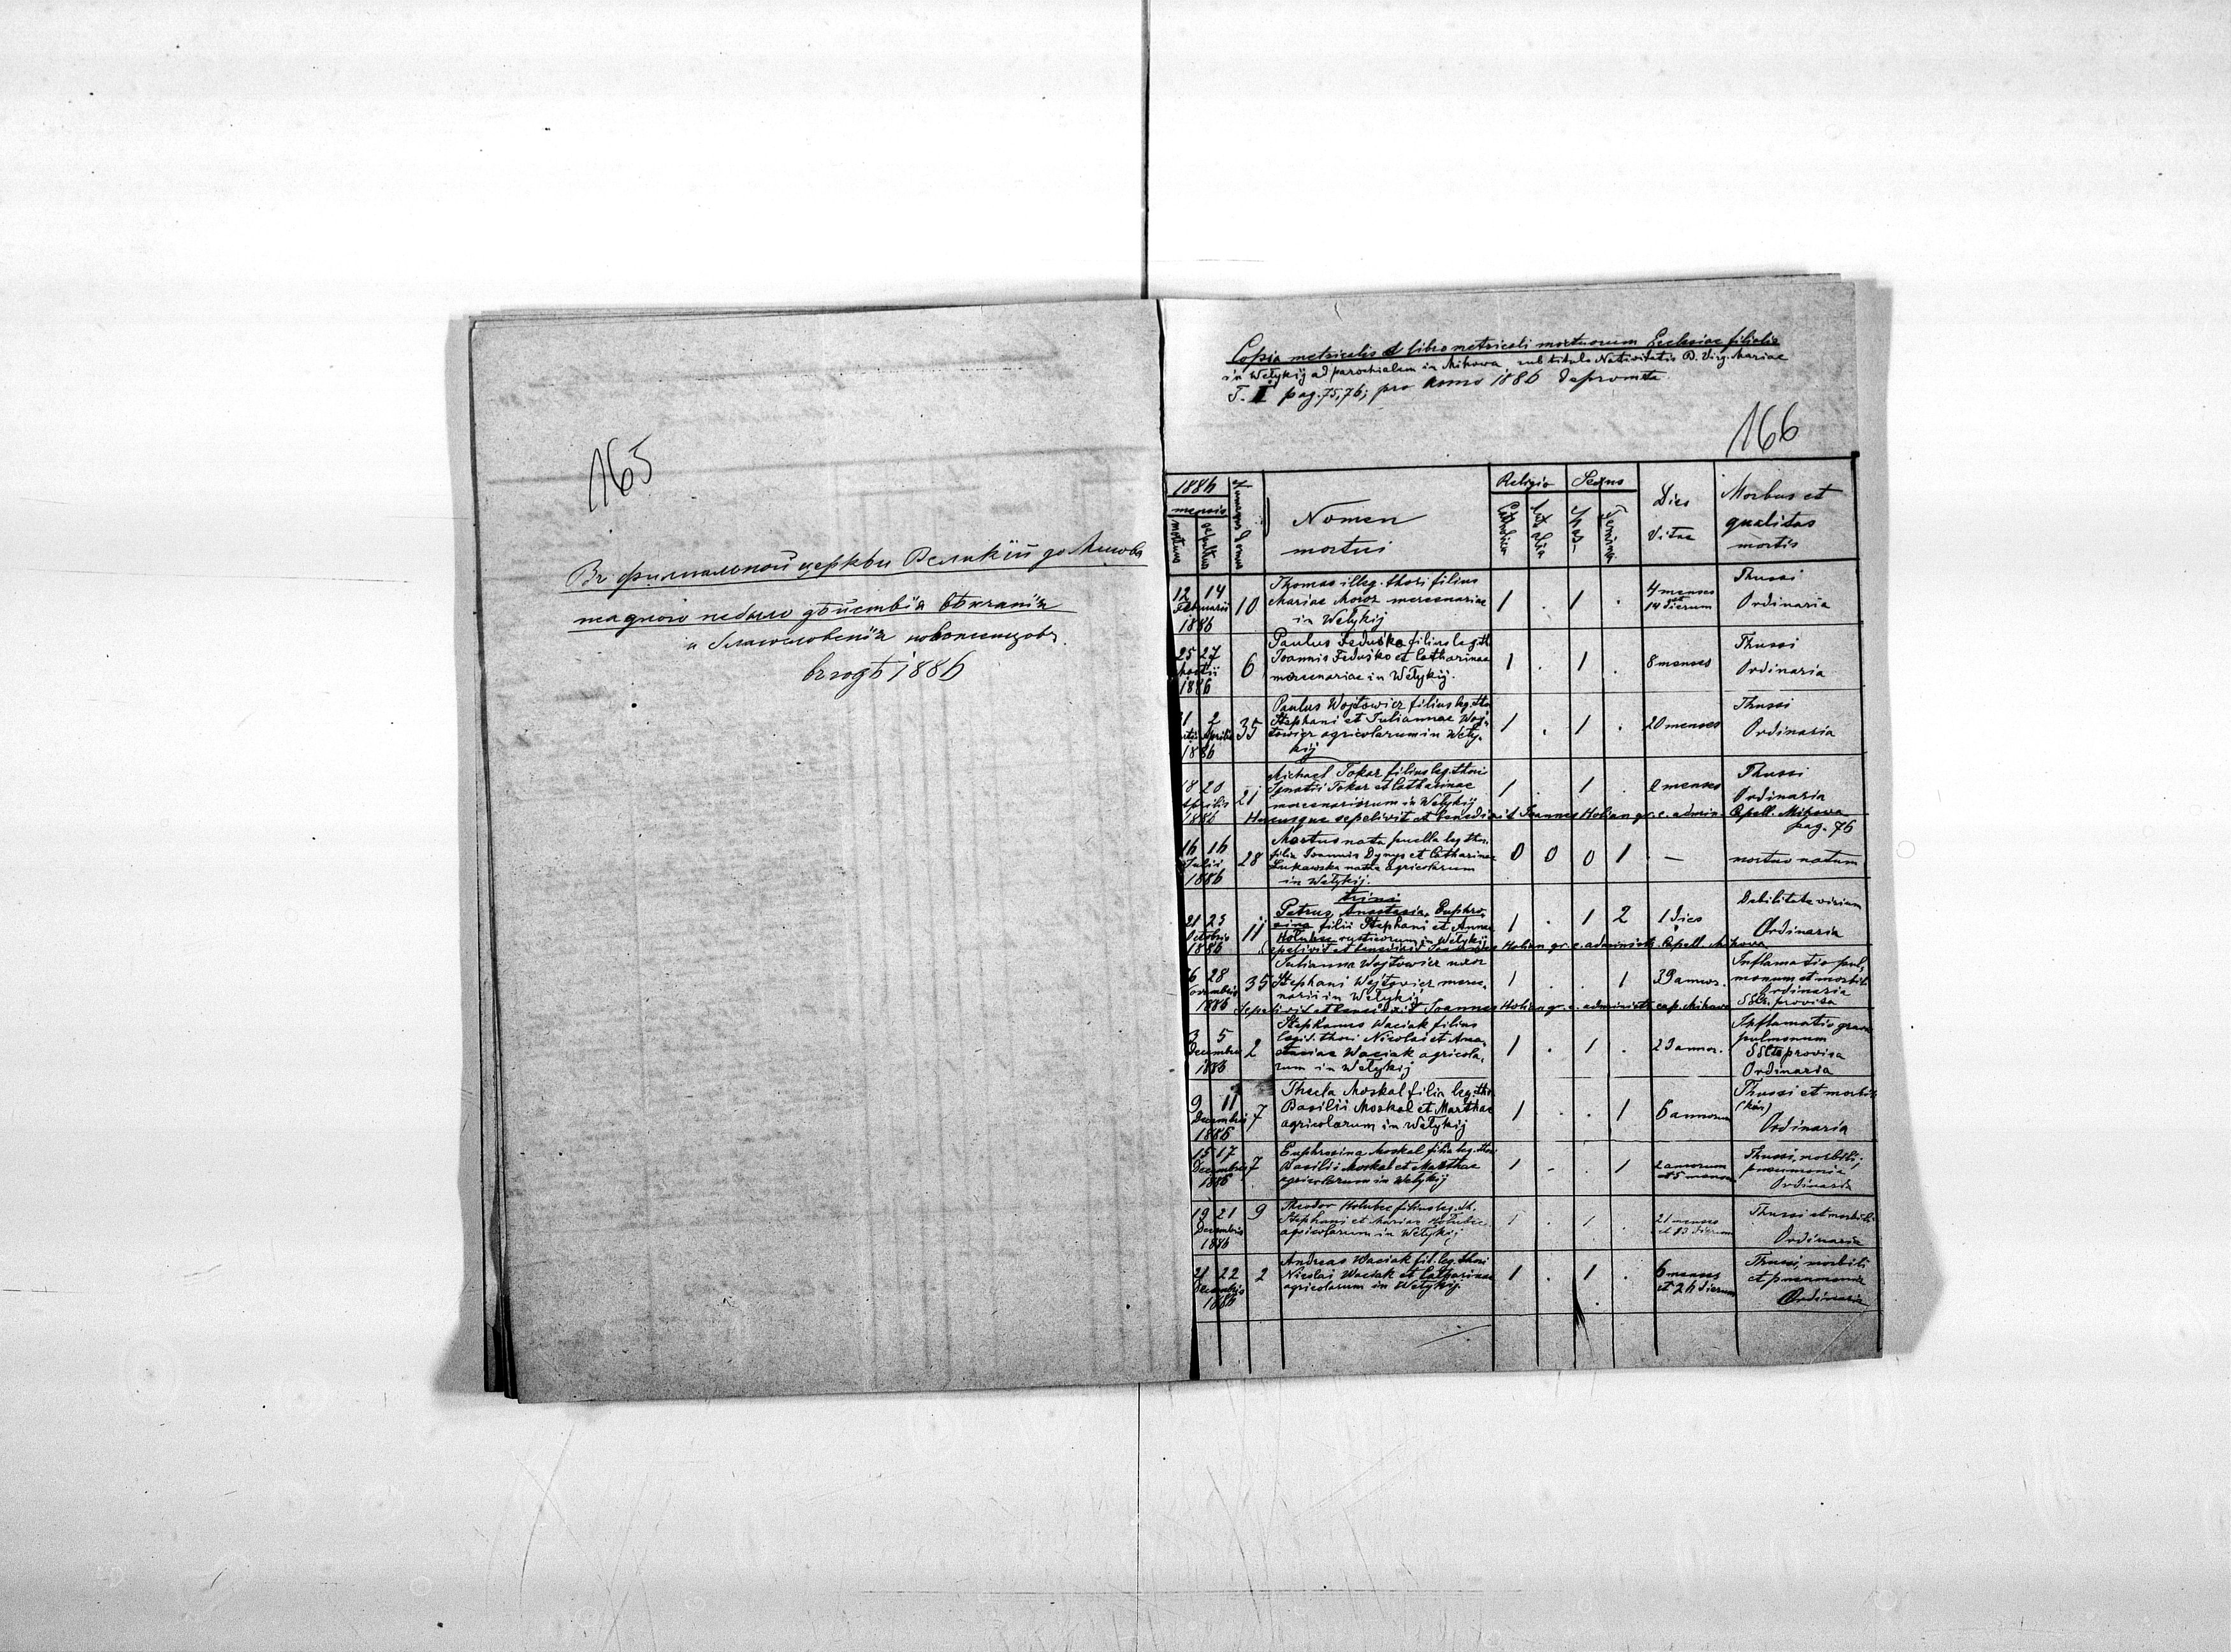 165
Въ филиальной церкви Великій до Миковъ
жадного небыло дѣйствія вѣнчанія
и благословенія новоженцовъ
въ годѣ 1886
Copia metricalis e libro metricali mortuorum Ecclesiae filialis
in Wełykij ad parochialem in Mikowa, sub titulo Nativitatis B. Virg. Mariae
T. II pag. 75, 76; pro anno 1886 deprompta
166
1886
mensis
mortuus
sepultus
Numerus domus
Nomen
mortui
Religio
Catholica
Sexus
Mas-
Feminin
Dies
Vitae
Morbus et
qualitas
mortis
12 14
Februarii
1886
10
Thomas illeg. thori filius
Mariae Moroz mercenariae
in Wełykij
1 . 1 .
4 menses
et
14 dierum
Thussi
Ordinaria
25 27
Martii
1886
6
Paulus Feduśko filius leg. th.
Joannis Feduśko et Catharinae
mercenariae in Wełykij.
1 . 1 .
8 menses
Thussi
Ordinaria
2
Aprilis
1886
35
Paulus Wojtowicz filius leg. tho
Stephani et Juliannae Woj-
towicz agricolarum in Wely-
kij
1 . 1 .
20 menses
Thussi
Ordinaria
18 20
Aprilis
1886
21
Michael Tokar filius leg. thori
Ignatii Tokar et Catharinae
mercenariorum in Wełykij
1 . 1 .
menses
Thussi
Ordinaria
Hucusque sepelivit et benedixit Joannes Holian gr. c. admin. Capell. Mikowa
pag. 76
16 16
Julii
1886
28
Mortuo nata puella leg. tho.
filia Joannis Dymys et Catharinae
Lukawska natae agricolarum
in Wełykij.
0 0 0 1
—
mortuo natum
21 23
Octobris
1886
11
trini
Petrus, Anastasia, Euphro-
sina filii Stephani et Annae
Holubec rusticorum in Wełykij
1 . 1 2
1 dies
Debilitate virium
Ordinaria
Sepelivit et benedixit Joannes Holian gr. c. administr. Capell. Mikowa
26 28
Novembris
1886
35
Julianna Wojtowicz uxor
Stephani Wojtowicz merce-
narii in Wełykij
1 . . 1
39 annor.
Inflamatio pul-
monum et morbili
Ordinaria
SSts. provisa
Sepelivit et benedixit Joannes Holian gr. c. administr. cap. Mikowa
3 5
Decembris
1886
2
Stephanus Waciak filius
legit. thori Nicolai et Ana-
stasiae Waciak agricola-
rum in Wełykij
1 . 1 .
23 annor.
Inflamatio
pulmonum
SSts provisa
Ordinaria
9 11
Decembris
1886
7
Thecla Moskal filia leg. tho.
Basilii Moskal et Marthae
agricolarum in Wełykij
1 . . 1
6 annorum
Thussi et morbili
Ordinaria
15 17
Decembris
1886
7
Euphrosina Moskal filia leg. tho.
Basilii Moskal et Marthae
agricolarum in Wełykij
1 - . 1
2 annorum
et 5 menses
Thussi, morbili,
pneumonia
Ordinaria
19 21
Decembris
1886
9
Theodor Holubec filius leg. th.
Stephani et Mariae Holubec
agricolarum in Wełykij
1 . 1 .
21 menses
et 13 dierum
Thussi et morbili
Ordinaria
21 22
Decembris
1886
2
Andreas Waciak fil. leg. thori
Nicolai Waciak et Catharinae
agricolarum in Wełykij.
1 . 1 .
6 menses
et 26 dierum
Thussi, morbili
et pneumonia
Ordinaria